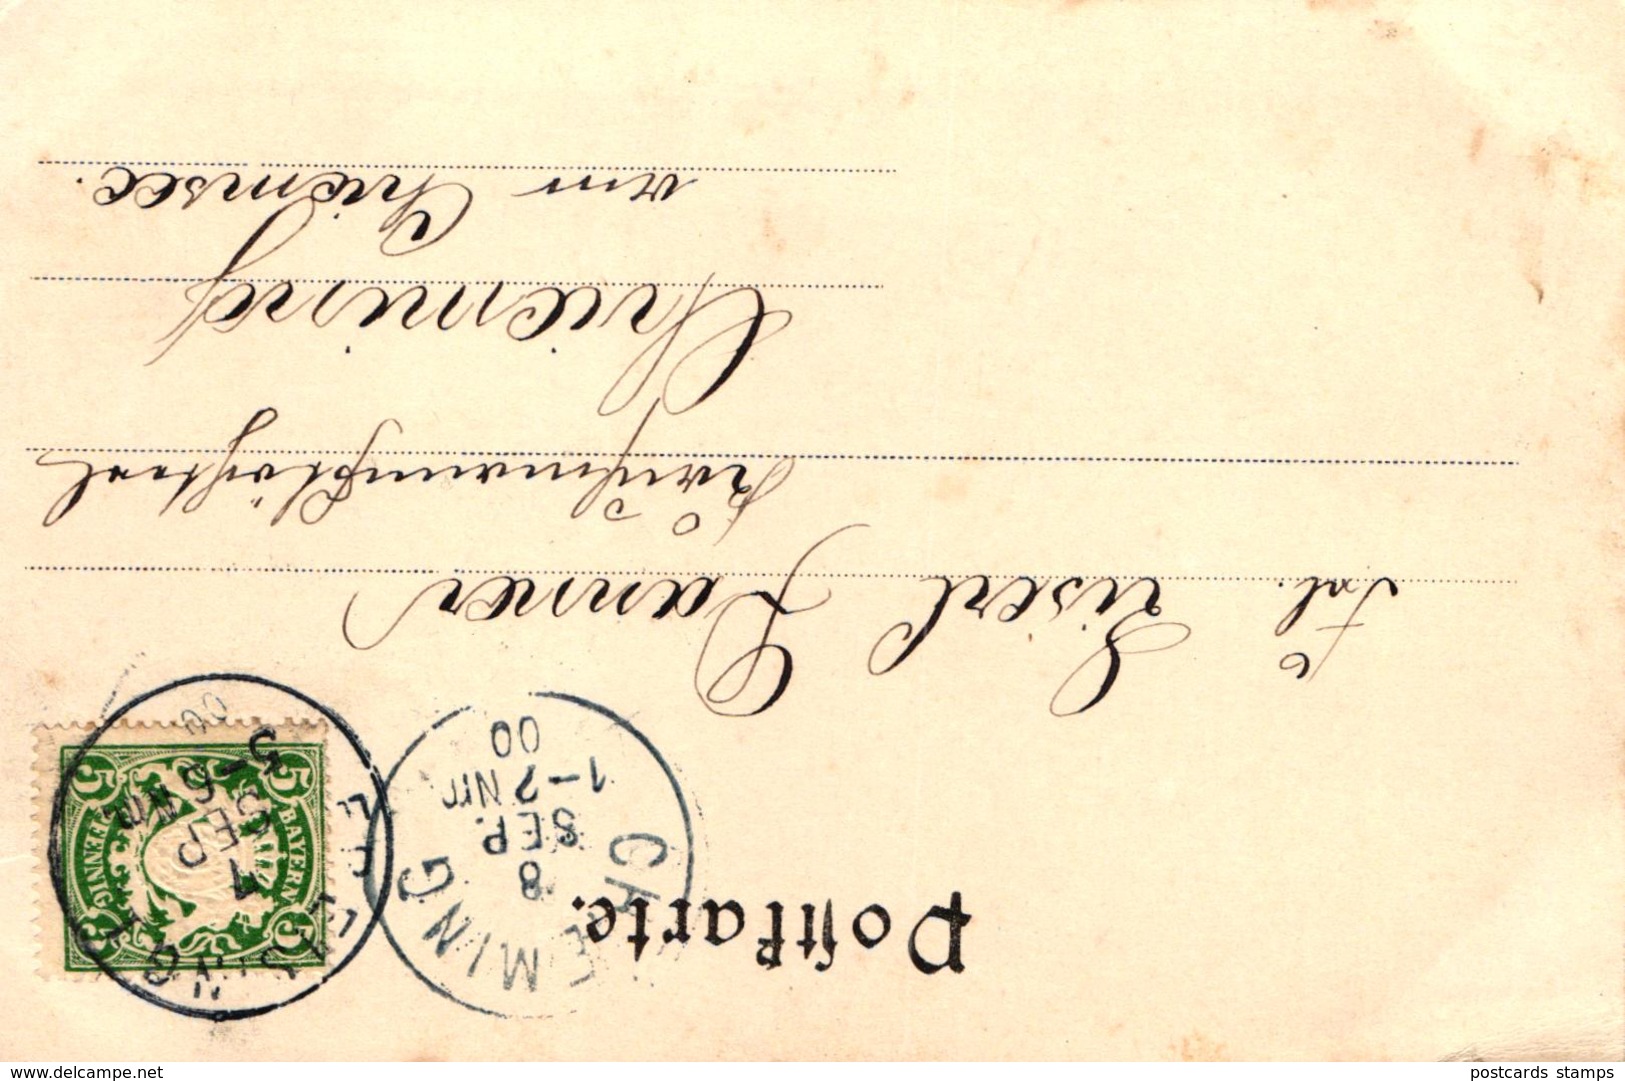 Postkarte.
Frl. Liserl Danner
Kaufmannstöchterl
Chieming
am Chiemsee.
CHIEMING
8
SEP.
1-2 Nm.
00
7
SEP
5-6 Nm.
00
BAYERN
5 5
5
PFENNIG
delcampe.net
postcards stamps